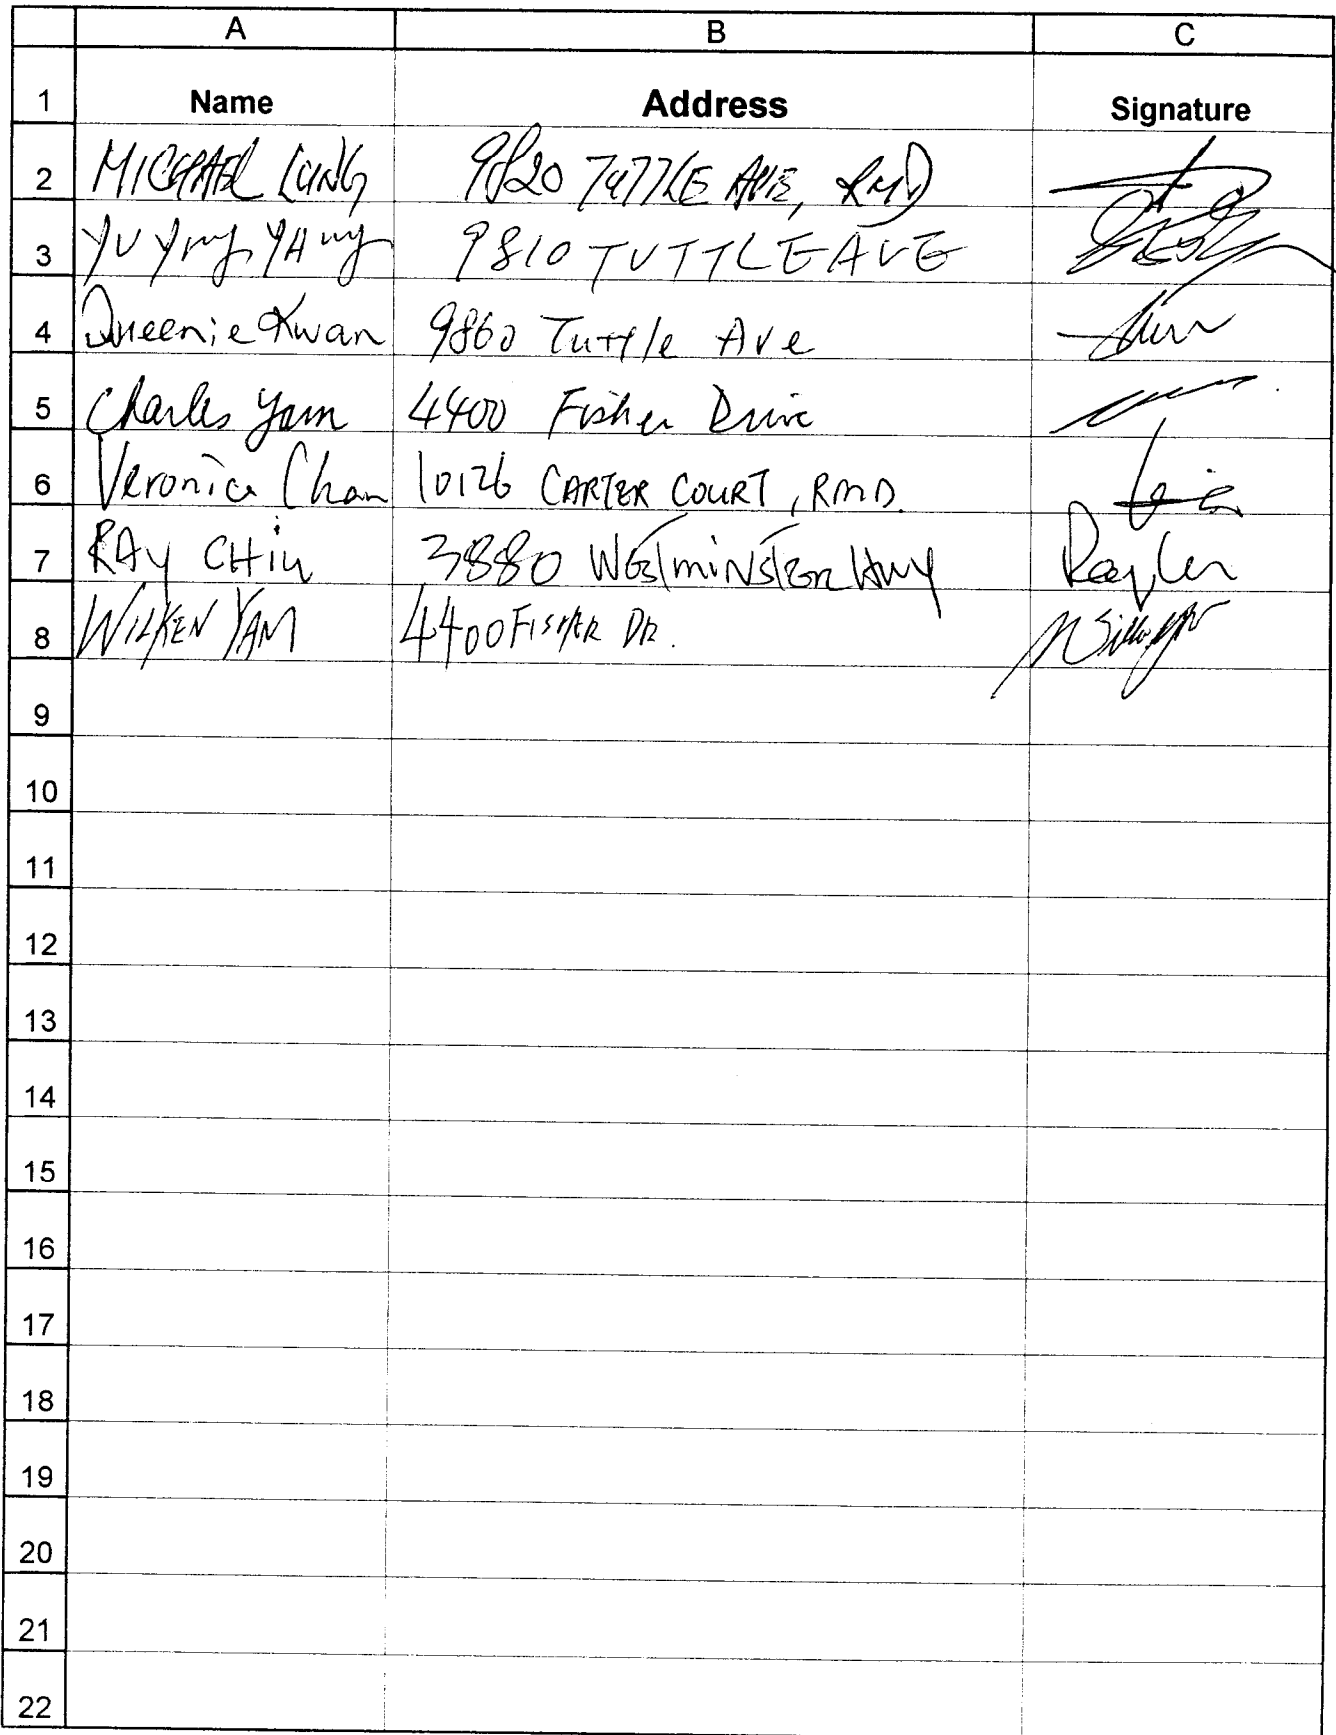 A B C
1 Name Address Signature
2 MICHAEL LUNG 9820 TUTTLE AVE, RMD
3 YU Ying YANG 9810 TUTTLE AVE
4 Queenie Kwan 9860 Tuttle Ave
5 Charles Yam 4400 Fisher Drive
6 Veronica Chan 10126 CARTER COURT, RMD.
7 RAY CHIU 3880 WESTMINSTER HWY
8 WILKEN YAM 4400 FISHER DR.
9
10
11
12
13
14
15
16
17
18
19
20
21
22